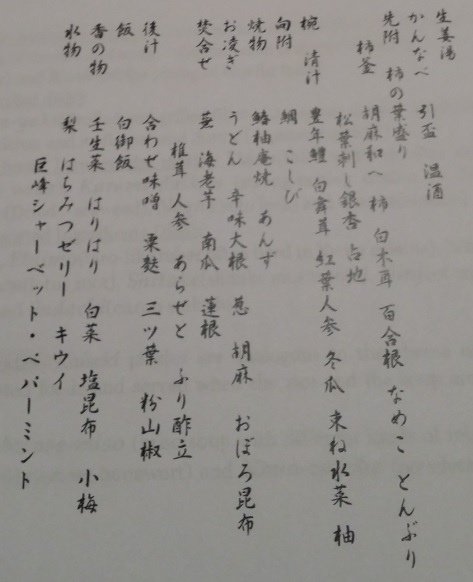 生姜湯
かんなべ 引盃 温酒
先附 柿の葉盛り
柿釜 胡麻和へ 柿 白木耳 百合根 なめこ とんぶり
松葉刺し銀杏 占地
椀 清汁 豊年鱧 白舞茸 紅葉人参 冬瓜 束ね水菜 柚
向附 鯛 こしび
焼物 鰆柚庵焼 あんず
お凌ぎ うどん 辛味大根 葱 胡麻 おぼろ昆布
焚合せ 蕪 海老芋 南瓜 蓮根
椎茸 人参 あらせと ふり酢立
後汁 合わせ味噌 粟麩 三ツ葉 粉山椒
飯 白御飯
香の物 壬生菜 はりはり 白菜 塩昆布 小梅
水物 梨 はちみつゼリー キウイ
巨峰シャーベット・ペパーミント